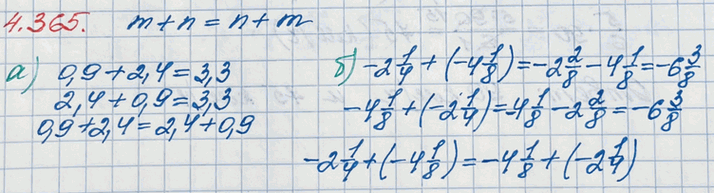 4.365. m + n = n + m
а) 0,9 + 2,4 = 3,3
2,4 + 0,9 = 3,3
0,9 + 2,4 = 2,4 + 0,9
б) -2 1/4 + (-4 1/8) = -2 2/8 - 4 1/8 = -6 3/8
-4 1/8 + (-2 1/4) = -4 1/8 - 2 2/8 = -6 3/8
-2 1/4 + (-4 1/8) = -4 1/8 + (-2 1/4)